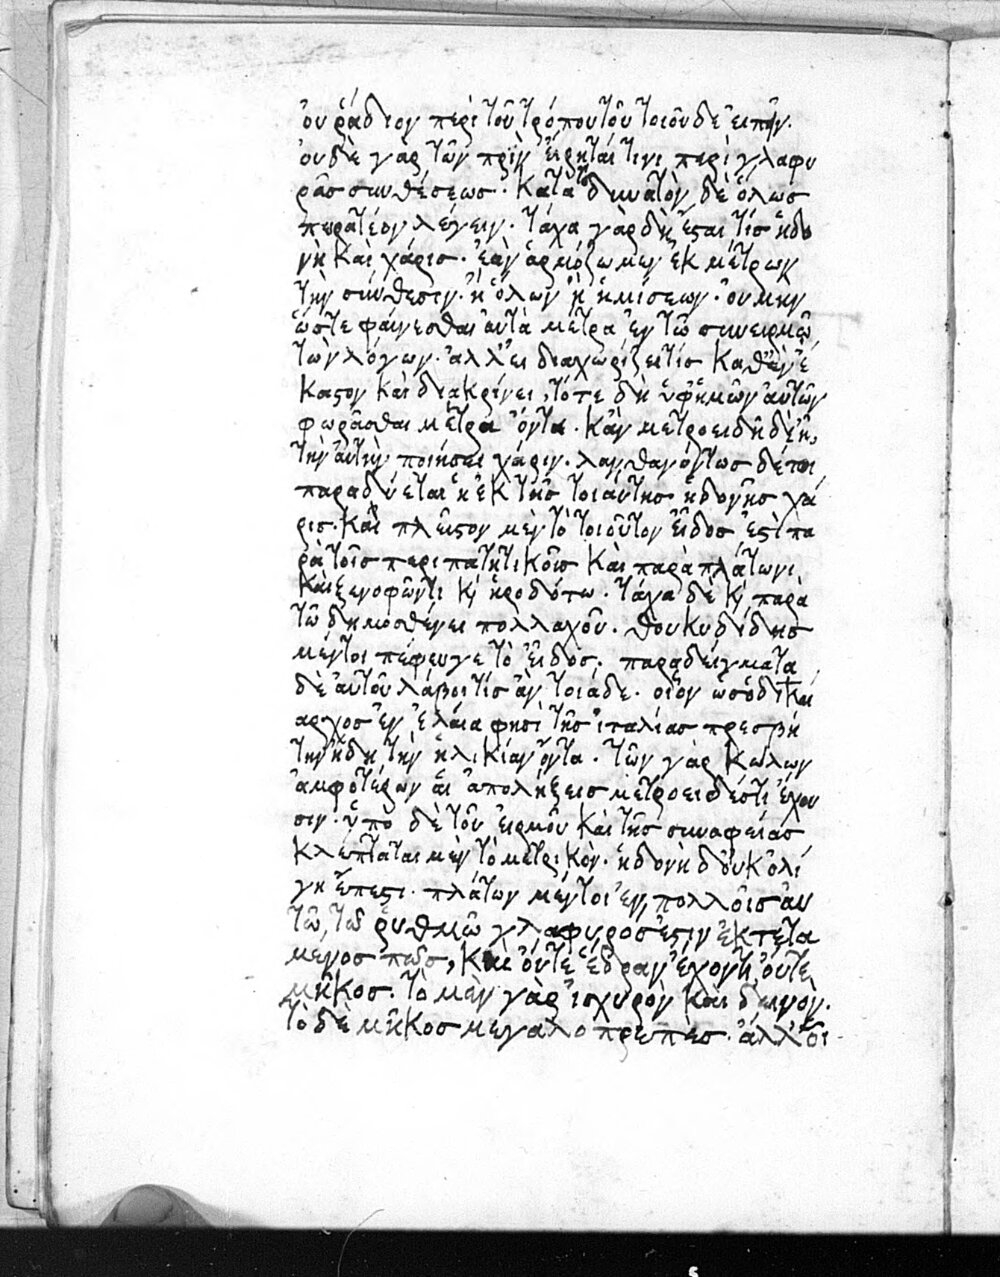 ὀυ ῥάδιον περὶ τοῦ τρόπου τοῦ τοιοῦδε ἐιπεῖν.
ὀυδὲ γὰρ τῶν πρὶν ἐίρηταί τινι περὶ γλαφυ
ρᾶσ συνθέσεωσ. Κατὰ τὸ δυνατὸν δὲ ὅλωσ
πειρατέον λέγειν. τάχα γὰρ δὴ ἔσται τίσ ἡδο
νὴ καὶ χάρισ. ἐὰν ἁρμόζωμεν ἐκ μέτρων
τὴν σύνθεσιν. ἢ ὅλων ἢ ἡμίσεων. ὀυ μὴν
ὥστε φαίνεσθαι ἀυτὰ μέτρα ἐν τῶ συνειρμῶ
τῶν λόγων. ἀλλ' ἐι διαχωρίζει τίσ καθ' ἓν ἕ
καστον καὶ διακρίνει, τότε δὴ ὑφ' ἡμῶν ἀυτῶν
φωρᾶσθαι μέτρα ὄντα. κἂν μετροειδῆ δὲ ἦ,
τὴν ἀυτὴν ποιήσει χάριν. λανθανόντωσ δέ τοι
παραδύεται ἡ ἐκ τῆσ τοιάυτησ ἡδονῆσ χά
ρισ. καὶ πλεῖστον μὲν τὸ τοιοῦτον ἐῖδοσ ἐστὶ πα
ρὰ τοῖσ περιπατητικοῖσ καὶ παρὰ πλάτωνι
καὶ ξενοφῶντι κὶ ἡροδότω. τάχα δὲ κὶ παρὰ
τῶ δημοσθένει πολλαχοῦ. θουκυδίδησ
μέντοι πέφευγε τὸ ἐῖδοσ. παραδείγματα
δὲ ἀυτοῦ λάβοι τίσ ἂν τοιάδε. οἷον ὡσ ὁ δικαί
αρχοσ ἐν ἐλέα φησὶ τῆσ ἰταλίασ πρεσβύ
την ἤδη τὴν ἡλικίαν ὄντα. τῶν γὰρ κώλων
ἀμφοτέρων ἁι ἀπολήξεισ μετροειδέστι ἔχου
σιν. ὑπὸ δὲ τοῦ ἐιρμοῦ καὶ τῆσ συναφείασ
κλέπτεται μὲν τὸ μετρικὸν. ἡδονὴ δ' ὀυκ ὀλί
γη ἔπεστι. πλάτων μέντοι ἐν πολλοῖσ ἀυ
τῶ, τῶ ῥυθμῶ γλαφυρόσ ἐστιν ἐκτετα
μένοσ πωσ, καὶ ὀύτε ἕδραν ἔχοντι, ὀύτε
μῆκοσ. τὸ μὲν γὰρ ἰσχυρὸν καὶ δεινὸν.
τὸ δὲ μῆκοσ μεγαλοπρεπεσ. ἀλλ' ὅι